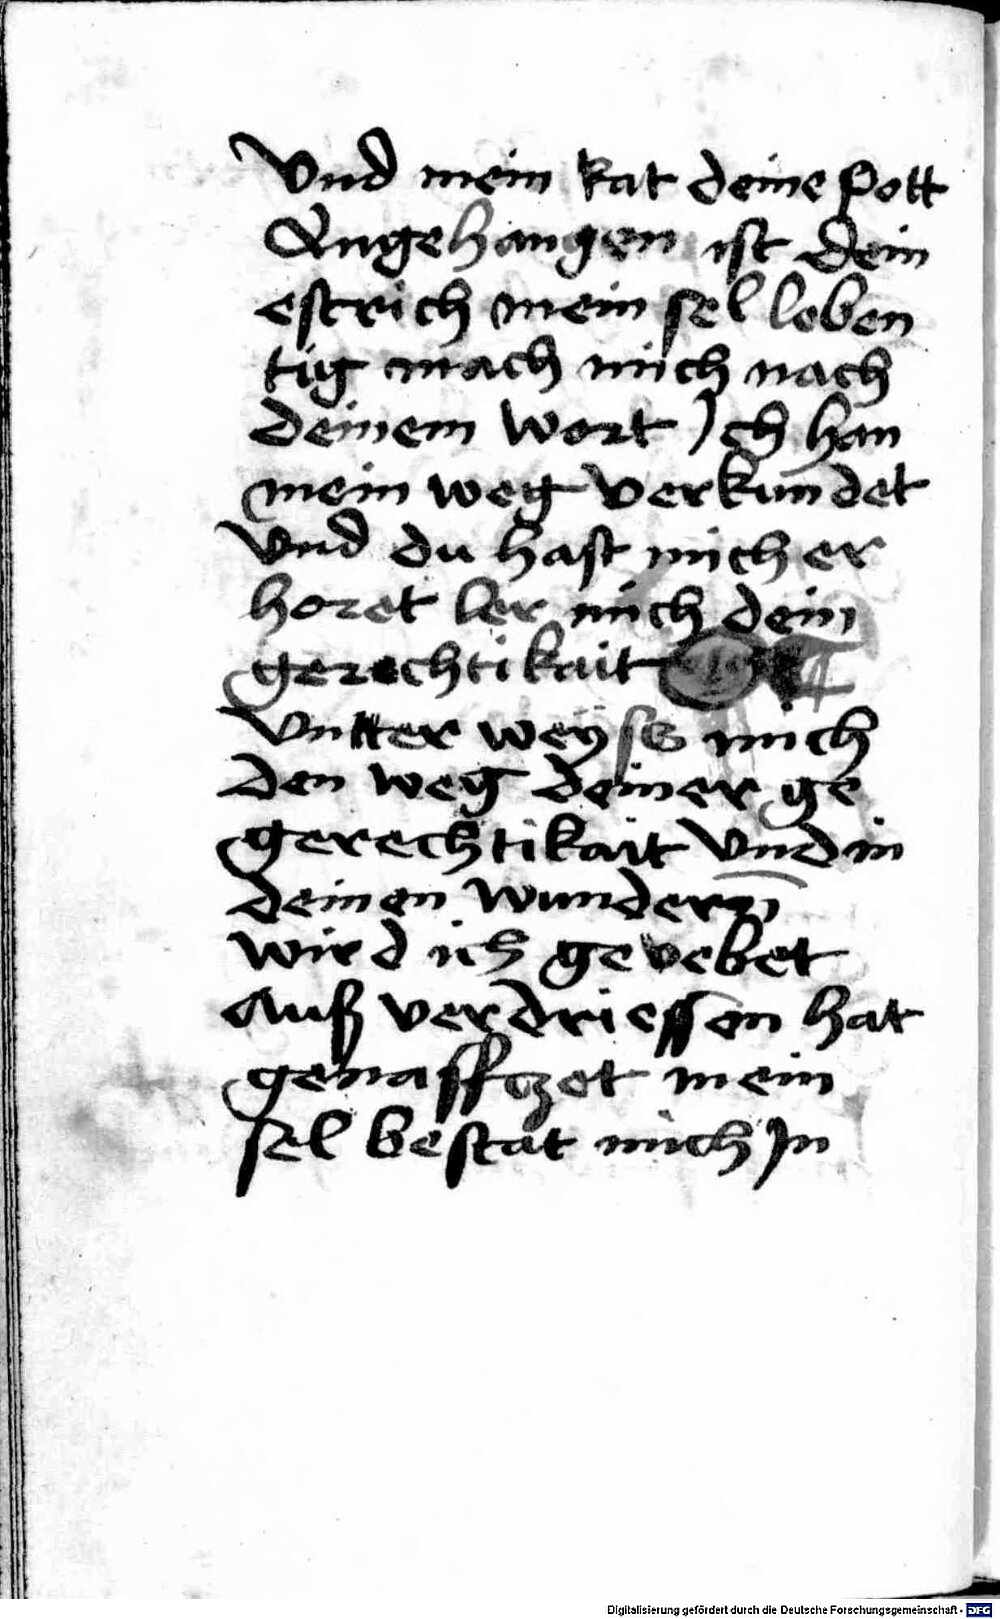 Vnd mein kat deine pott
Angehangen ist dein
estrich mein sel leben
tig mach mich nach
deinem wort Jch han
mein weg verkundet
Vnd du hast mich er
horet ler mich dein
gerechtikait
Vntter weyss mich
den weg deiner ge
gerechtikait Vnd in
deinen wundern
wird ich gevebet
Auß verdriessen hat
genaffczet mein
sel bestat mich Jn
Digitalisierung gefördert durch die Deutsche Forschungsgemeinschaft - DFG